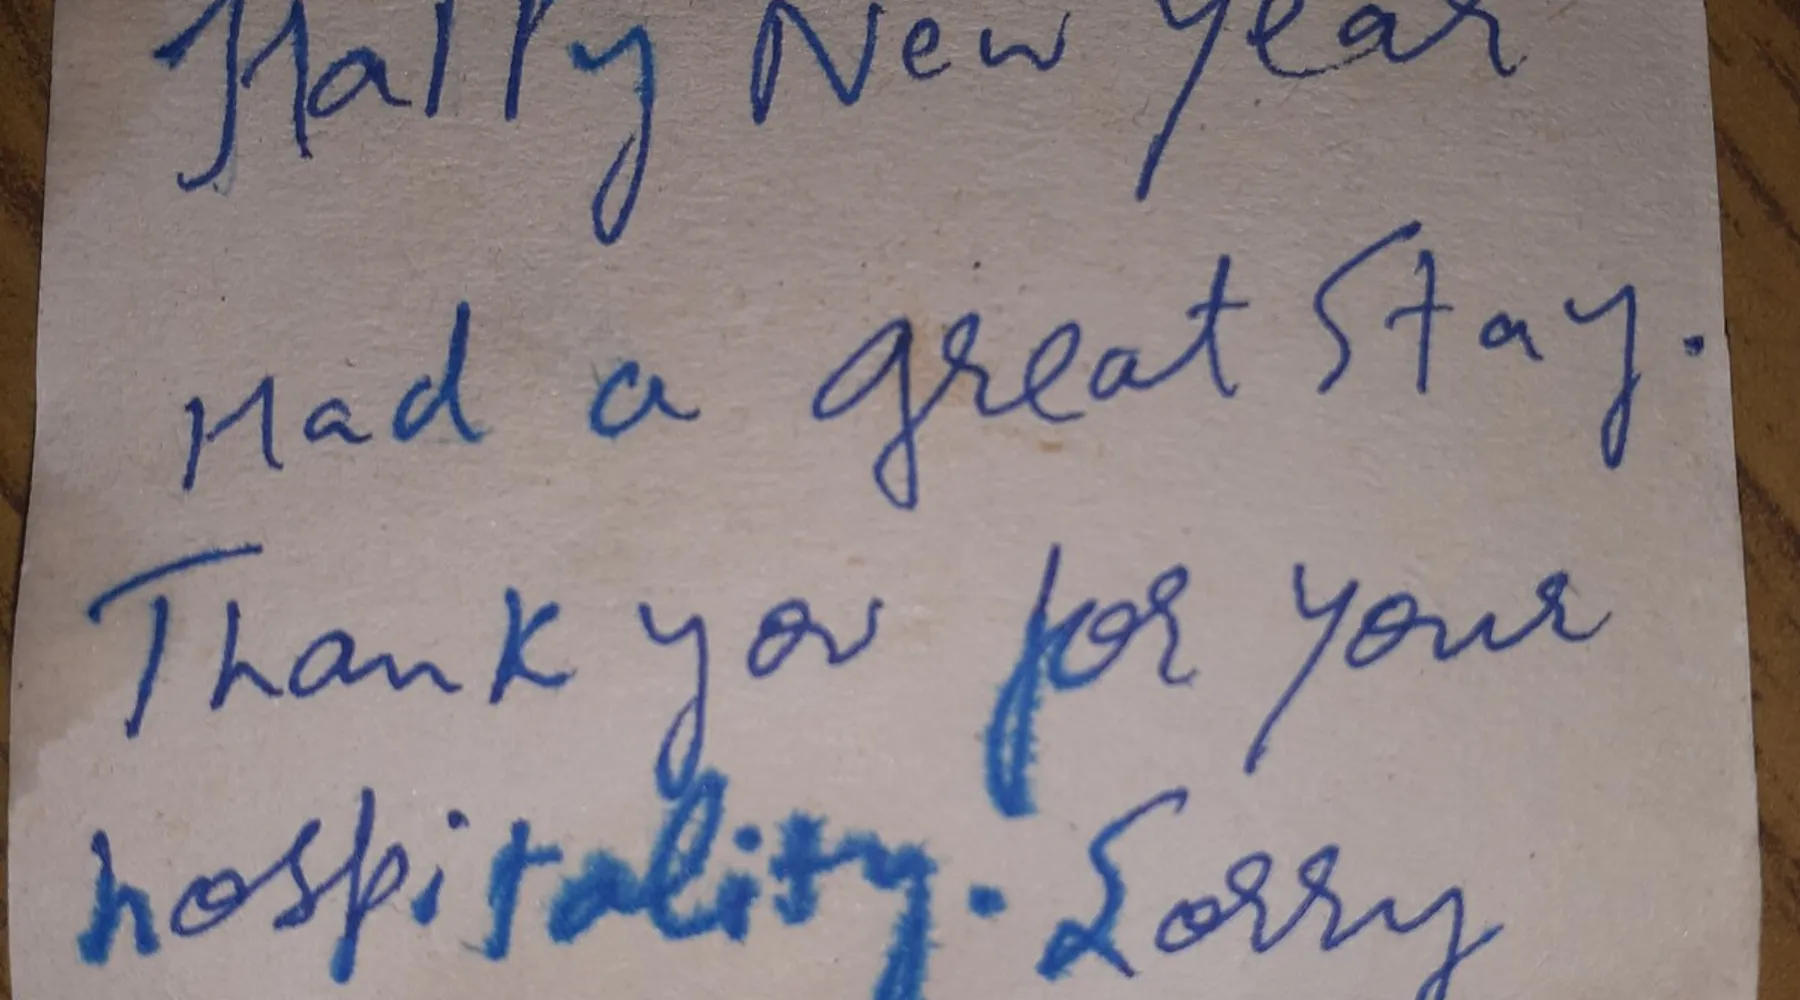 Happy New Year
Had a great Stay.
Thank you for your
hospitality. Sorry